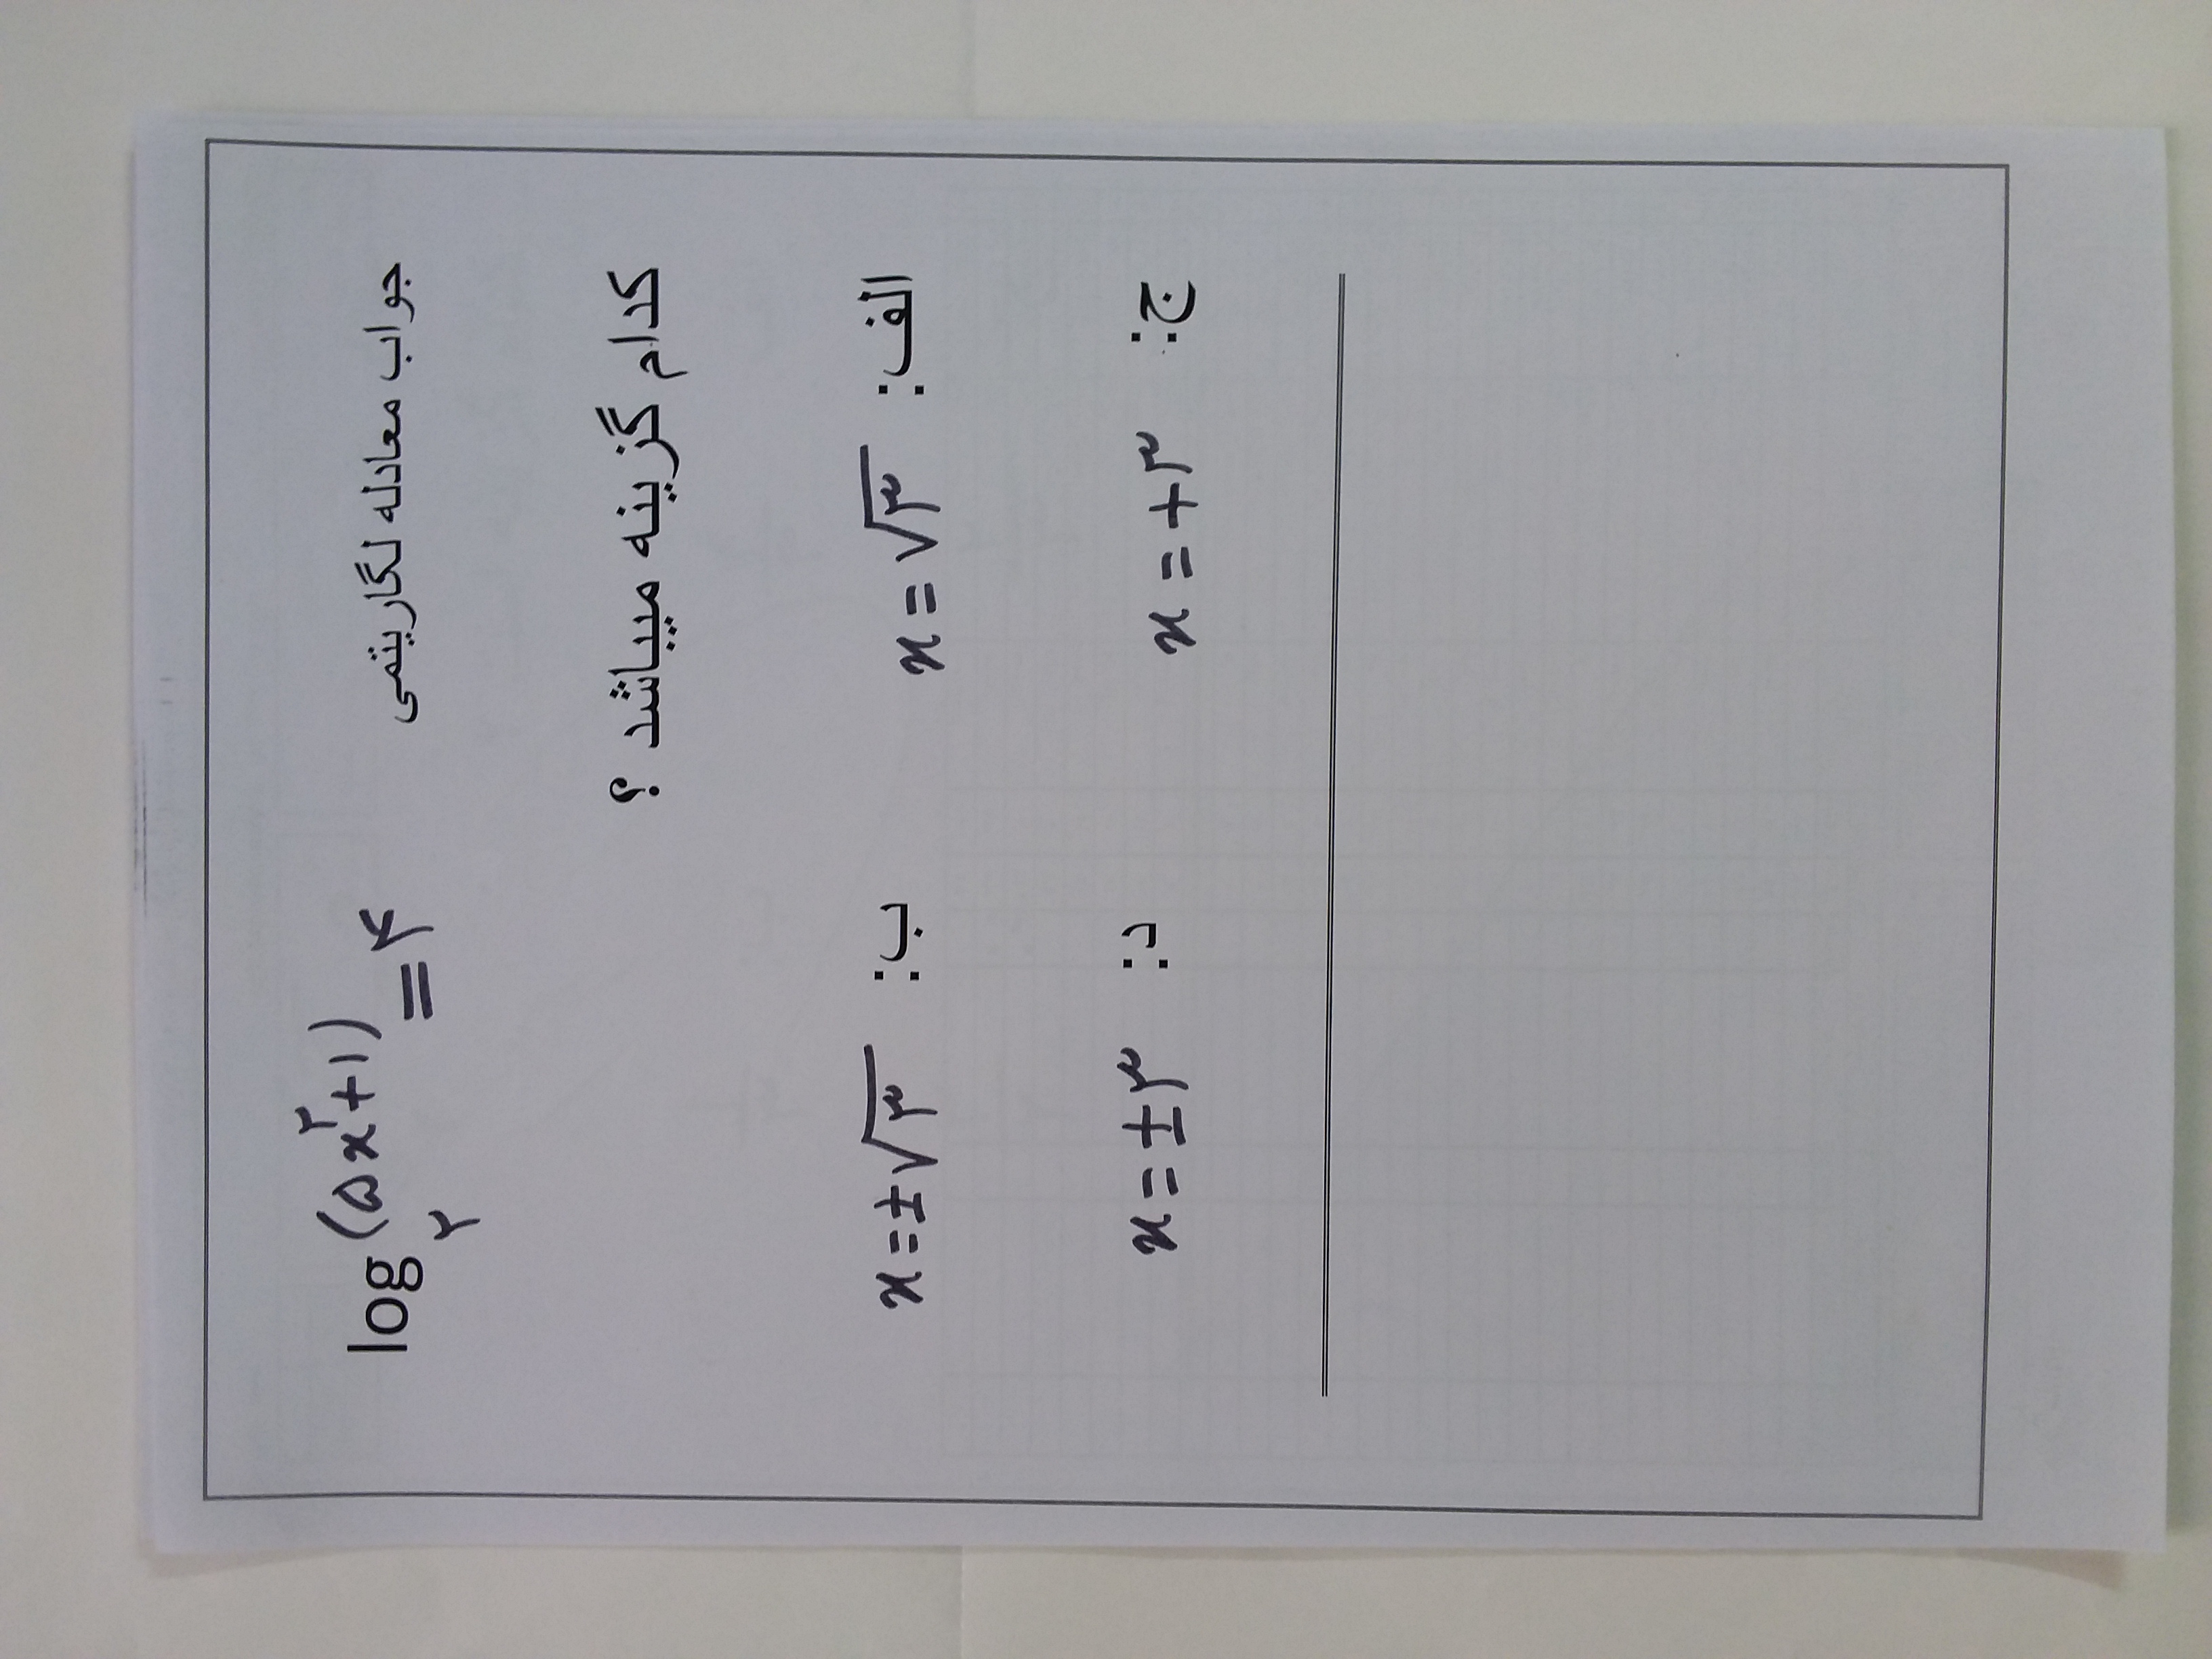 جواب معادله لگاریتمی log₂(۵x²+۱)=۴
کدام گزینه میباشد ؟
الف: x=√۳ ب: x=±√۳
ج: x=+۳ د: x=±۳